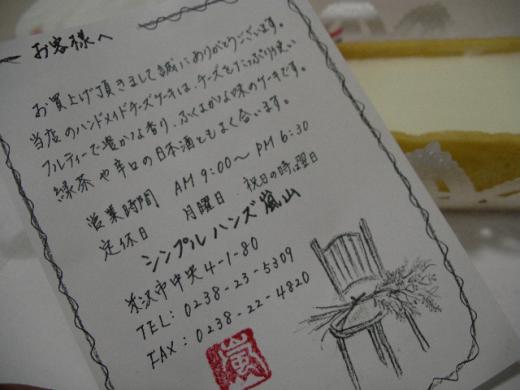 お客様へ
お買上げ頂きまして誠にありがとうございます。
当店のハンドメイドチーズケーキは、チーズをたっぷり使い
フルティーで豊かな香り、ふくよかな味のケーキです。
緑茶や辛口の日本酒ともよく合います。
営業時間 AM 9:00〜PM 6:30
定休日 月曜日 祝日の時は曜日
シンプルハンズ嵐山
米沢市中央4-1-80
TEL: 0238-23-5309
FAX: 0238-22-4820
嵐